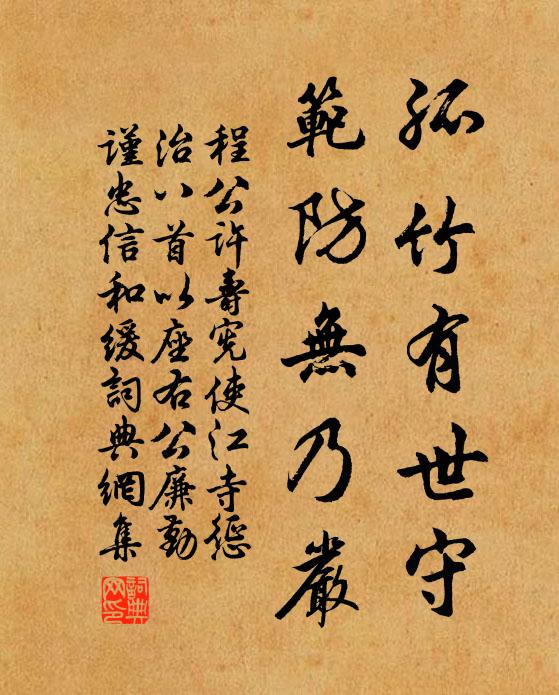 孤竹有世守
範防無乃嚴
程公許壽宪使江寺丞
治八首以座右公廉勤
謹忠信和緩詞典網集
詞典
网印